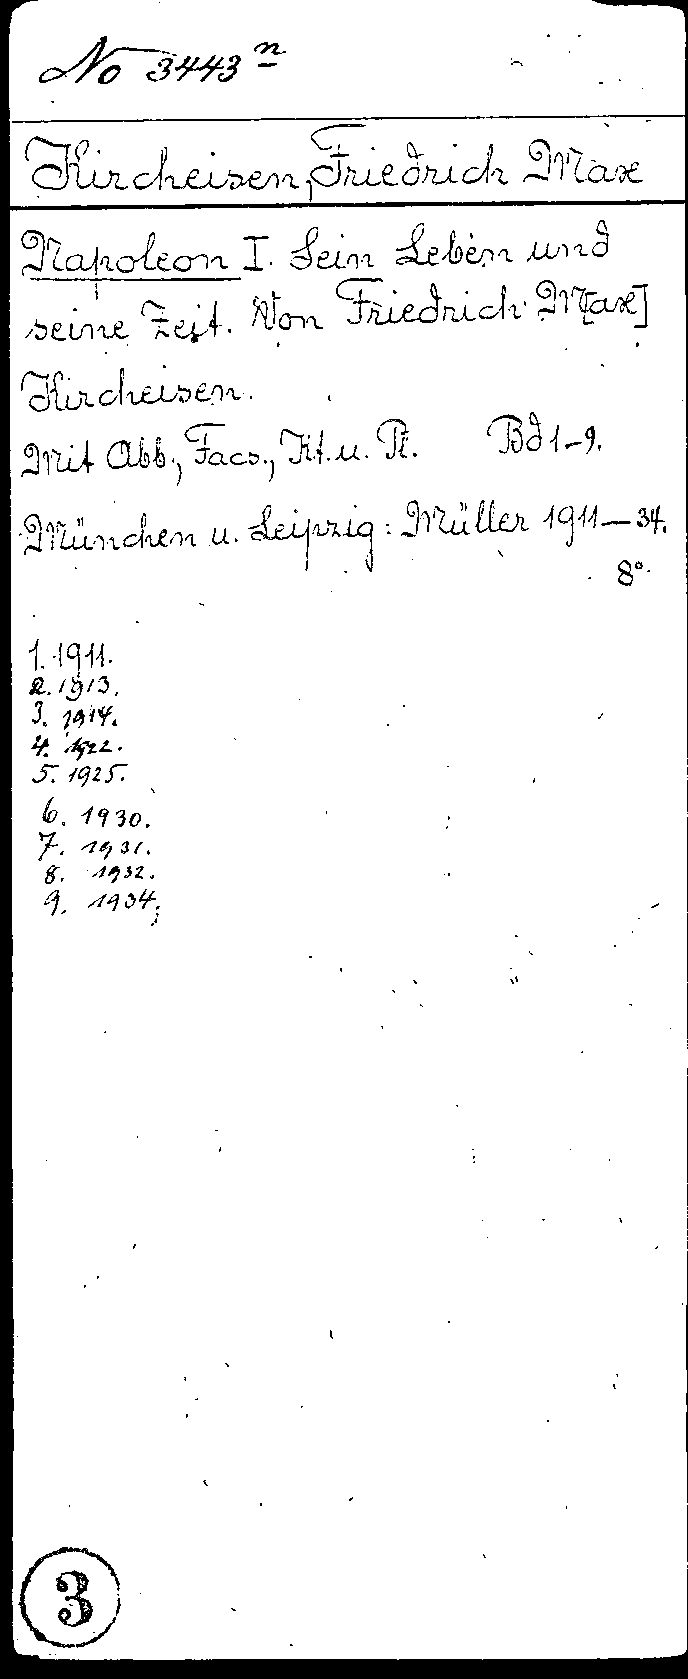 No 3443 n
Kircheisen, Friedrich Max
Napoleon I. Sein Leben und
seine Zeit. Von Friedrich M[ax]
Kircheisen.
Mit Abb., Facs., Kt. u. Pl. Bd 1-9.
München u. Leipzig: Müller 1911-34.
8°.
1. 1911.
2. 1913.
3. 1914.
4. 1922.
5. 1925.
6. 1930.
7. 1931.
8. 1932.
9. 1934.
3